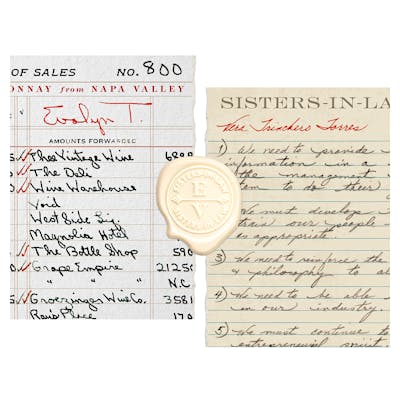 OF SALES NO. 800
ONNAY from NAPA VALLEY
Evalyn T.
AMOUNTS FORWARDED
Thee Vintage Wine
The Deli
Wine Warehouse
Void
West Side Liq.
Magnolia Hotel
The Bottle Shop 590
Grape Empire 21250
" " N.C.
Groezinger Wine Co. 3581
SISTERS-IN-LA
Vera Trinchero Torres
1) We need to provide
information in a
the management
tem to do their
We must develop
train our people
as appropriate
3) We need to reinforce the
& philosophy to al
4) We need to be able
in our industry.
5) We must continue to
entrepreneurial spirit
E
V